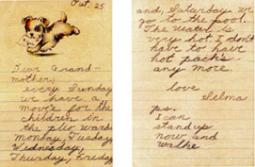 Oct. 25
Dear Grand-
mother,
every Sunday
we have a
movie for the
children in
the plio wards
Monday, Tuesday
Wednesday,
Thursday, Friday
and, Saturday we
go to the pool.
The water is
very hot I don't
have to have
hot packs
any more
love
Selma
ps.
I can
stand up
now and
walke